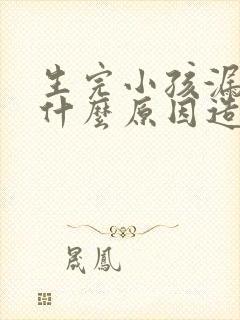 生完小孩漏
什麼原因造
晟鳳